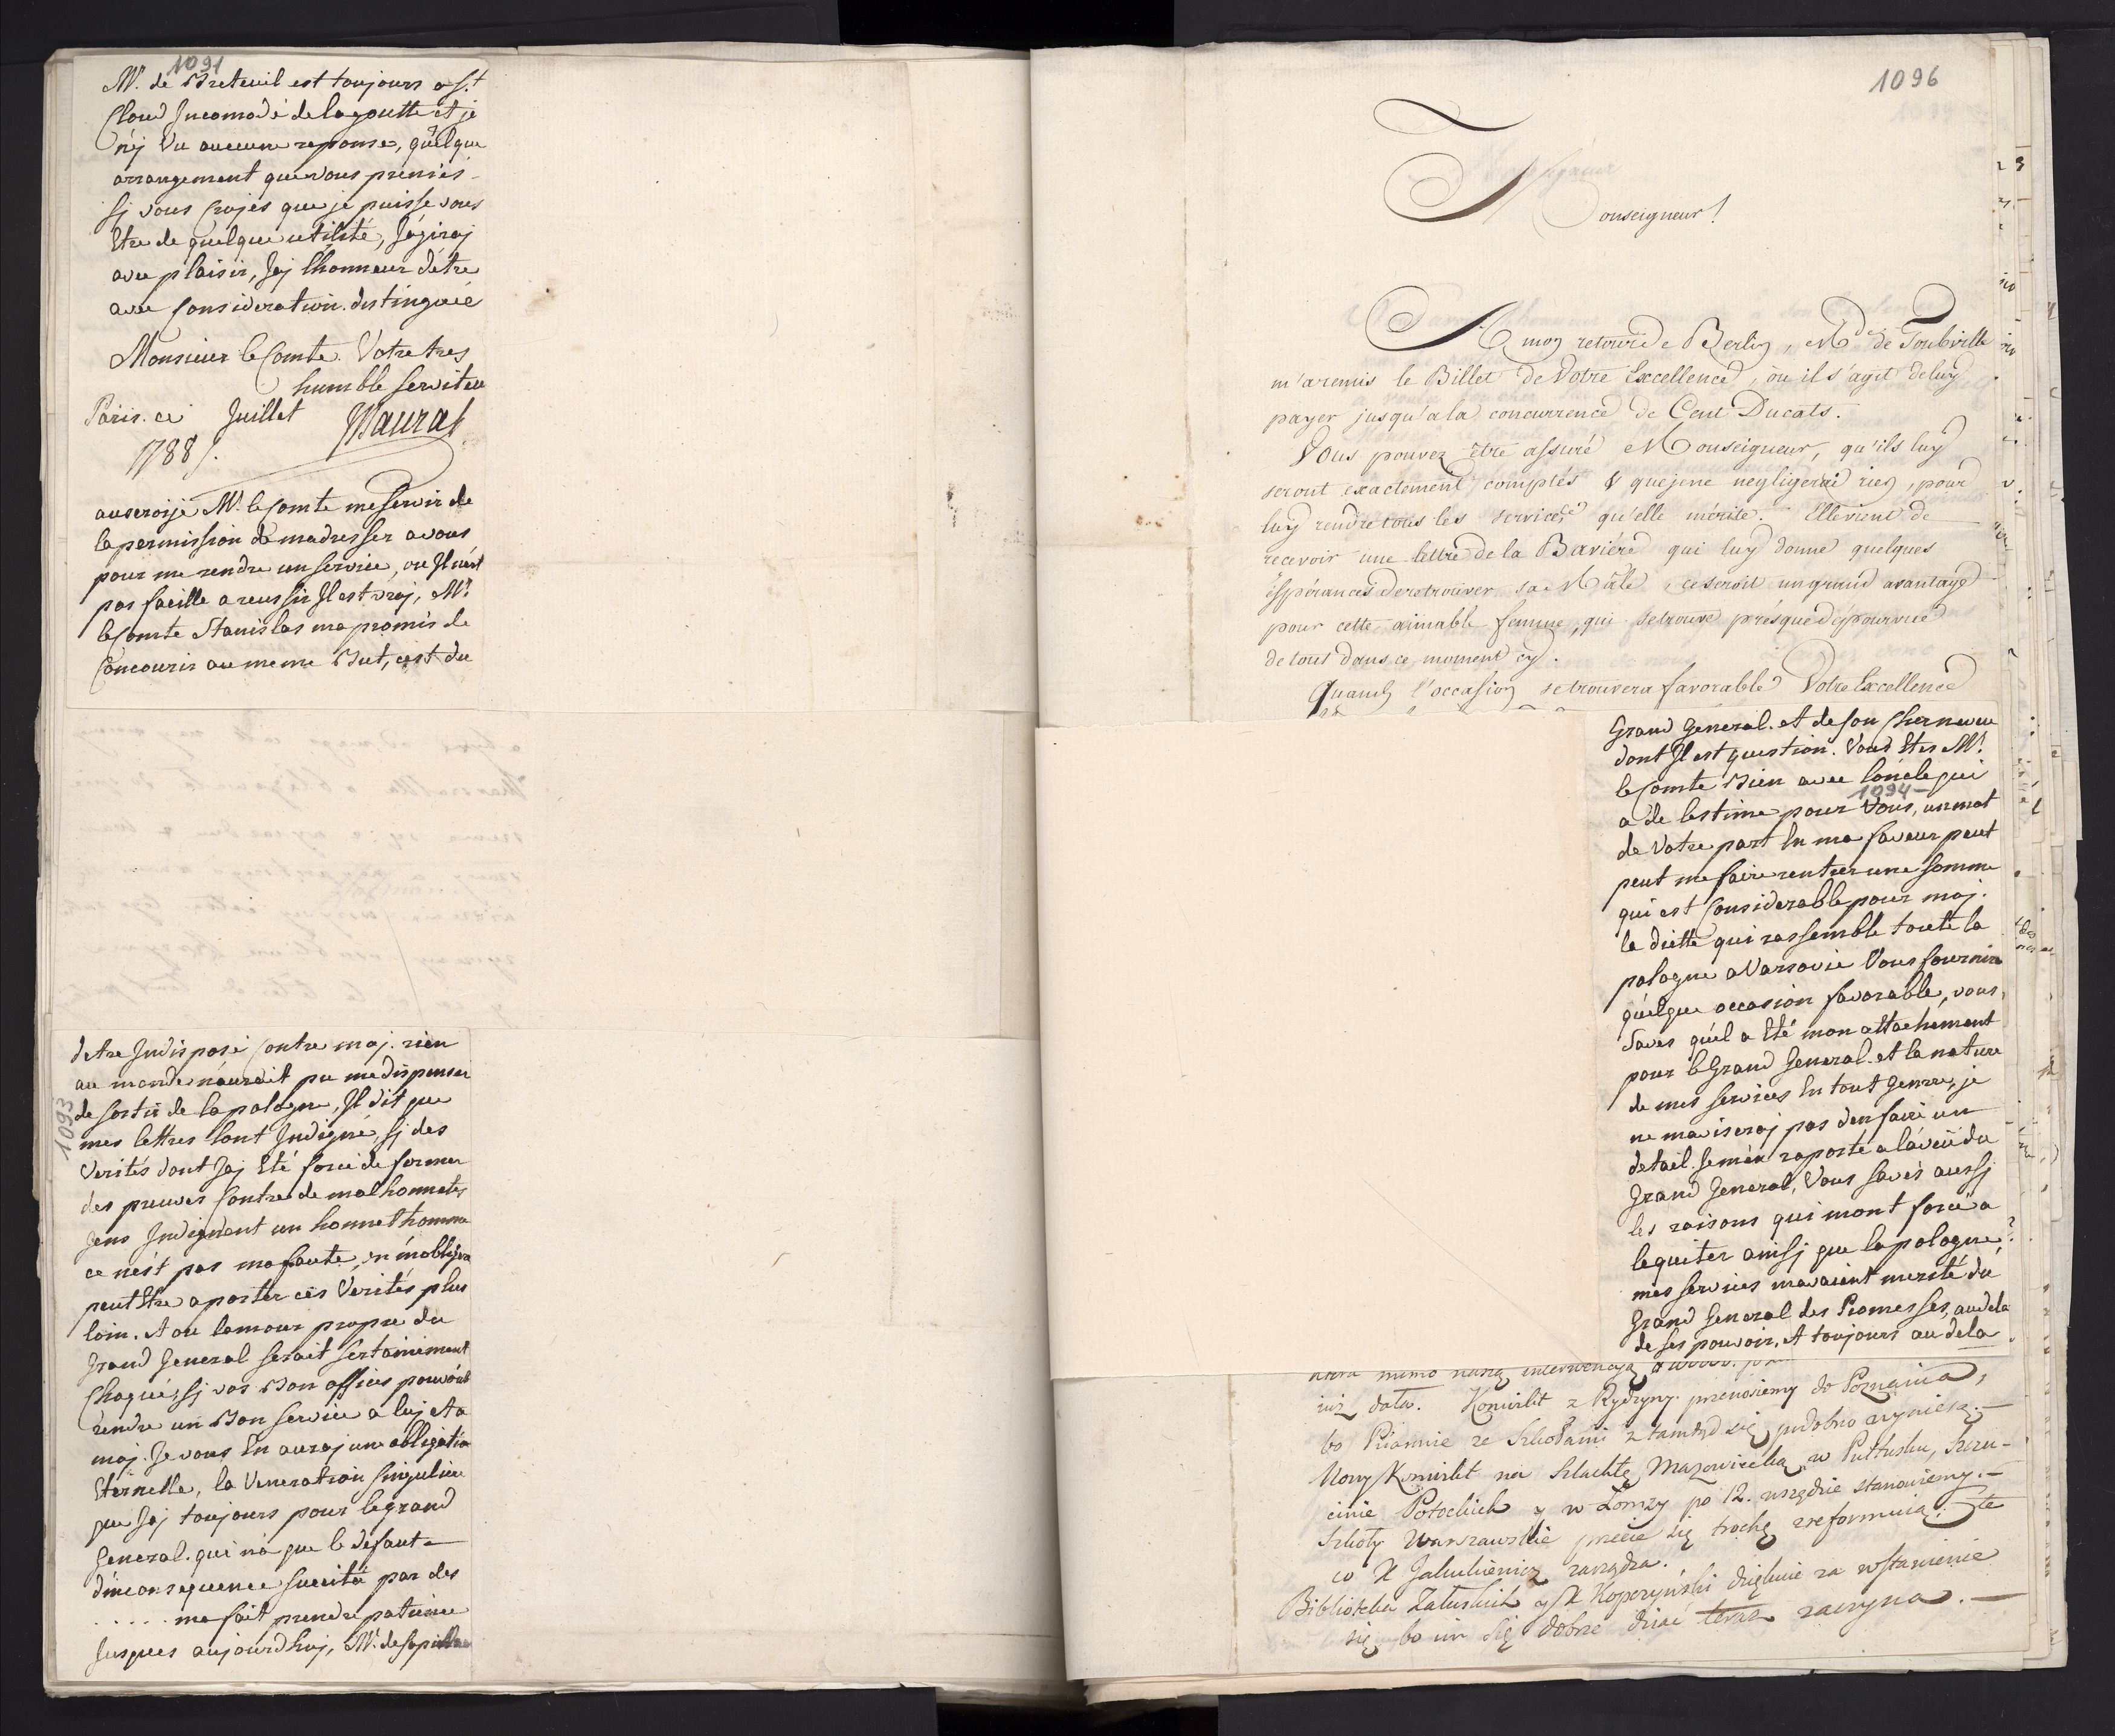 1091
Mr. de Breteuil est toujours a St
Cloud Incomodé de la goutte et je
n'ej Vu aucune reponse, quelque
arrangement que vous preniés
sj vous Crojés que je puisse vous
Etre de quelque utilité, J'agiraj
avec plaisir, Jaj l'honneur d'étre
avec Consideration distinguéé
Monsieur le Comte Votre tres
humble serviteur
Paris. ce Juillet Maurat
1788/.
auseroije Mr. le Comte me servir de
la permission de m'adresser a vous
pour me rendre un service, ou Il n'est
pas facille a reussir Il est vraj, Mr.
le Comte Stanislas ma promis de
Concourir au meme But, c'est du
1093
detre Indisposé Contre moj. rien
au monde n'auroit pu me dispenser
de sortir de la pologne, Il dit que
mes lettres sont Indigne, sj des
Verités dont Jaj Eté forcé de former
des preuves Contre de malhonnetes
gens Indignent un honnet homme
ce n'est pas ma faute, on m'obligera
peut Etre a porter cés Verités plus
loin. et ou lamour propre du
Grand General serait sertainement
Choqué, sj vos Bon offices pouvoit
rendre un Bon service a luj et a
moj. Je vous En auraj une obligation
Eternelle, la Veneration singuliere
que Jaj toujours pour le grand
General. qui n'a que le defaut
d'inconsequence suscité par des
..... ma fait prendre patience
Jusques aujourdhuj, Mr. de
1096
Monseigneur!
A mon retour de Berlin, Mde de Toubville
m'a remis le Billet de Votre Excellence, où il s'agit de luy
payer jusqu'a la concurrence de Cent Ducats.
Vous pouvez être assuré Monseigneur, qu'ils luy
seront exactement comptés & que je ne negligerai rien, pour
luy rendre tous les services qu'elle mérite. Elle vient de
recevoir une lettre de la Baviére qui luy donne quelques
Espérances de retrouver sa Mâle, ce seroit un grand avantage
pour cette aimable femme, qui se trouve présque dépourvue
de tout dans ce moment cy.
Quand l'occasion se trouvera favorable Votre Excellence
Grand General. et de son Cher neveu
dont Il est question. Vous Etes Mr.
le Comte Bien avec loncle qui
1094
a de lestime pour Vous, un mot
de Votre part En ma faveur peut
peut me faire rentrer une somme
qui est Considerable pour moj.
la diette qui rassemble toute la
pologne a Varsovie Vous fournira
quelque occasion favorable, vous
savés quél a Eté mon attachement
pour le Grand General. et la nature
de mes services En tout genre, je
ne maviseraj pas d'en faire un
detail. Je mén raporte a lávéü du
Grand General, Vous savés aussj
les raisons qui mont forcé a
le quiter ainsj que la pologne,
més services mavaient merité du
Grand General des Promesses, au dela
de ses pouvoir, et toujours au dela
która mimo naszą interwencyą
iuż dała. Konwikt z Rydzyny przenosiemy do Poznania,
bo Piiarnie ze Szkołami ztamtąd się podobno wyniesą.—
Nowy Konwikt na Szlachtę Mazowiecką w Pułtusku, Szczu-
cinie Potockich y w Łomzy po 12. wszędzie stanowiemy.—
Szkoły Warszawskie przecie się trochę zreformuią. Zte
co X Jakukiewicz zarządza.
Biblioteka Załuskich y X Koperzyński dziękuie za wstawienie
się bo im się dobrze dziać teraz zaczyna.—